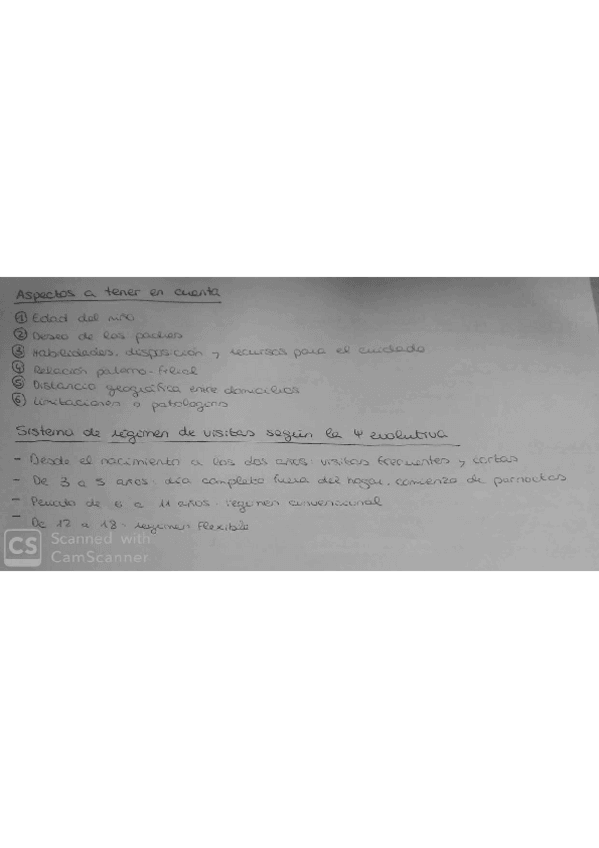 Aspectos a tener en cuenta
① Edad del niño
② Deseo de los padres
③ Habilidades, disposición y recursos para el cuidado
④ Relación paterno-filial
⑤ Distancia geográfica entre domicilios
⑥ Limitaciones o patologías
Sistema de régimen de visitas según la Ψ evolutiva
- Desde el nacimiento a los dos años: visitas frecuentes y cortas
- De 3 a 5 años: día completo fuera del hogar, comienzo de pernoctas
- de 6 a 11 años: régimen convencional
- De 12 a 18: régimen flexible
CS Scanned with
CamScanner